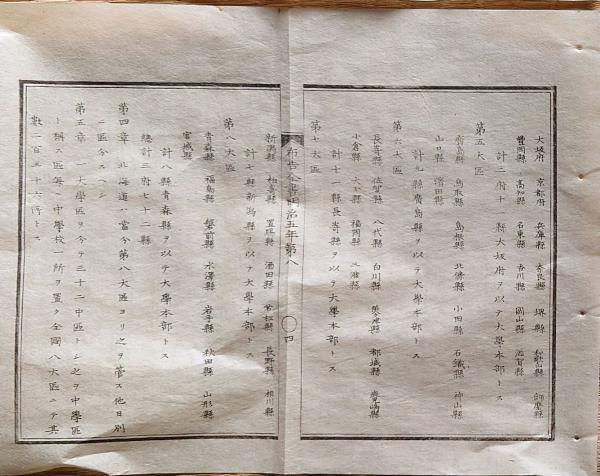 大坂府 京都府 兵庫縣 奈良縣 堺縣 和歌山縣 飾磨縣
豐岡縣 高知縣 名東縣 香川縣 岡山縣 滋賀縣
計二府十一縣大坂府ヲ以テ大學本部トス
第五大區
廣島縣 鳥取縣 島根縣 北條縣 小田縣 石鐵縣 神山縣
山口縣 濱田縣
計九縣廣島縣ヲ以テ大學本部トス
第六大區
長崎縣 佐賀縣 八代縣 白川縣 美々津縣 都城縣 鹿兒島縣
小倉縣 大分縣 福岡縣 三潴縣
計十一縣長崎縣ヲ以テ大學本部トス
第七大區
布告全書明治五年第八 〇 四
新潟縣 柏崎縣 置賜縣 酒田縣 若松縣 長野縣 相川縣
計七縣新潟縣ヲ以テ大學本部トス
第八大區
青森縣 福島縣 磐前縣 水澤縣 岩手縣 秋田縣 山形縣
宮城縣
計八縣青森縣ヲ以テ大學本部トス
總計三府七十二縣
第四章 北海道ハ當今第八大區ヨリ之ヲ管ス他日別
ニ區分スヘシ
第五章 大學區ヲ分テ三十二中區トシ之ヲ中學區
ト稱ス區每ニ中學校一所ヲ置ク全國八大區ニテ其
數二百五十六所トス